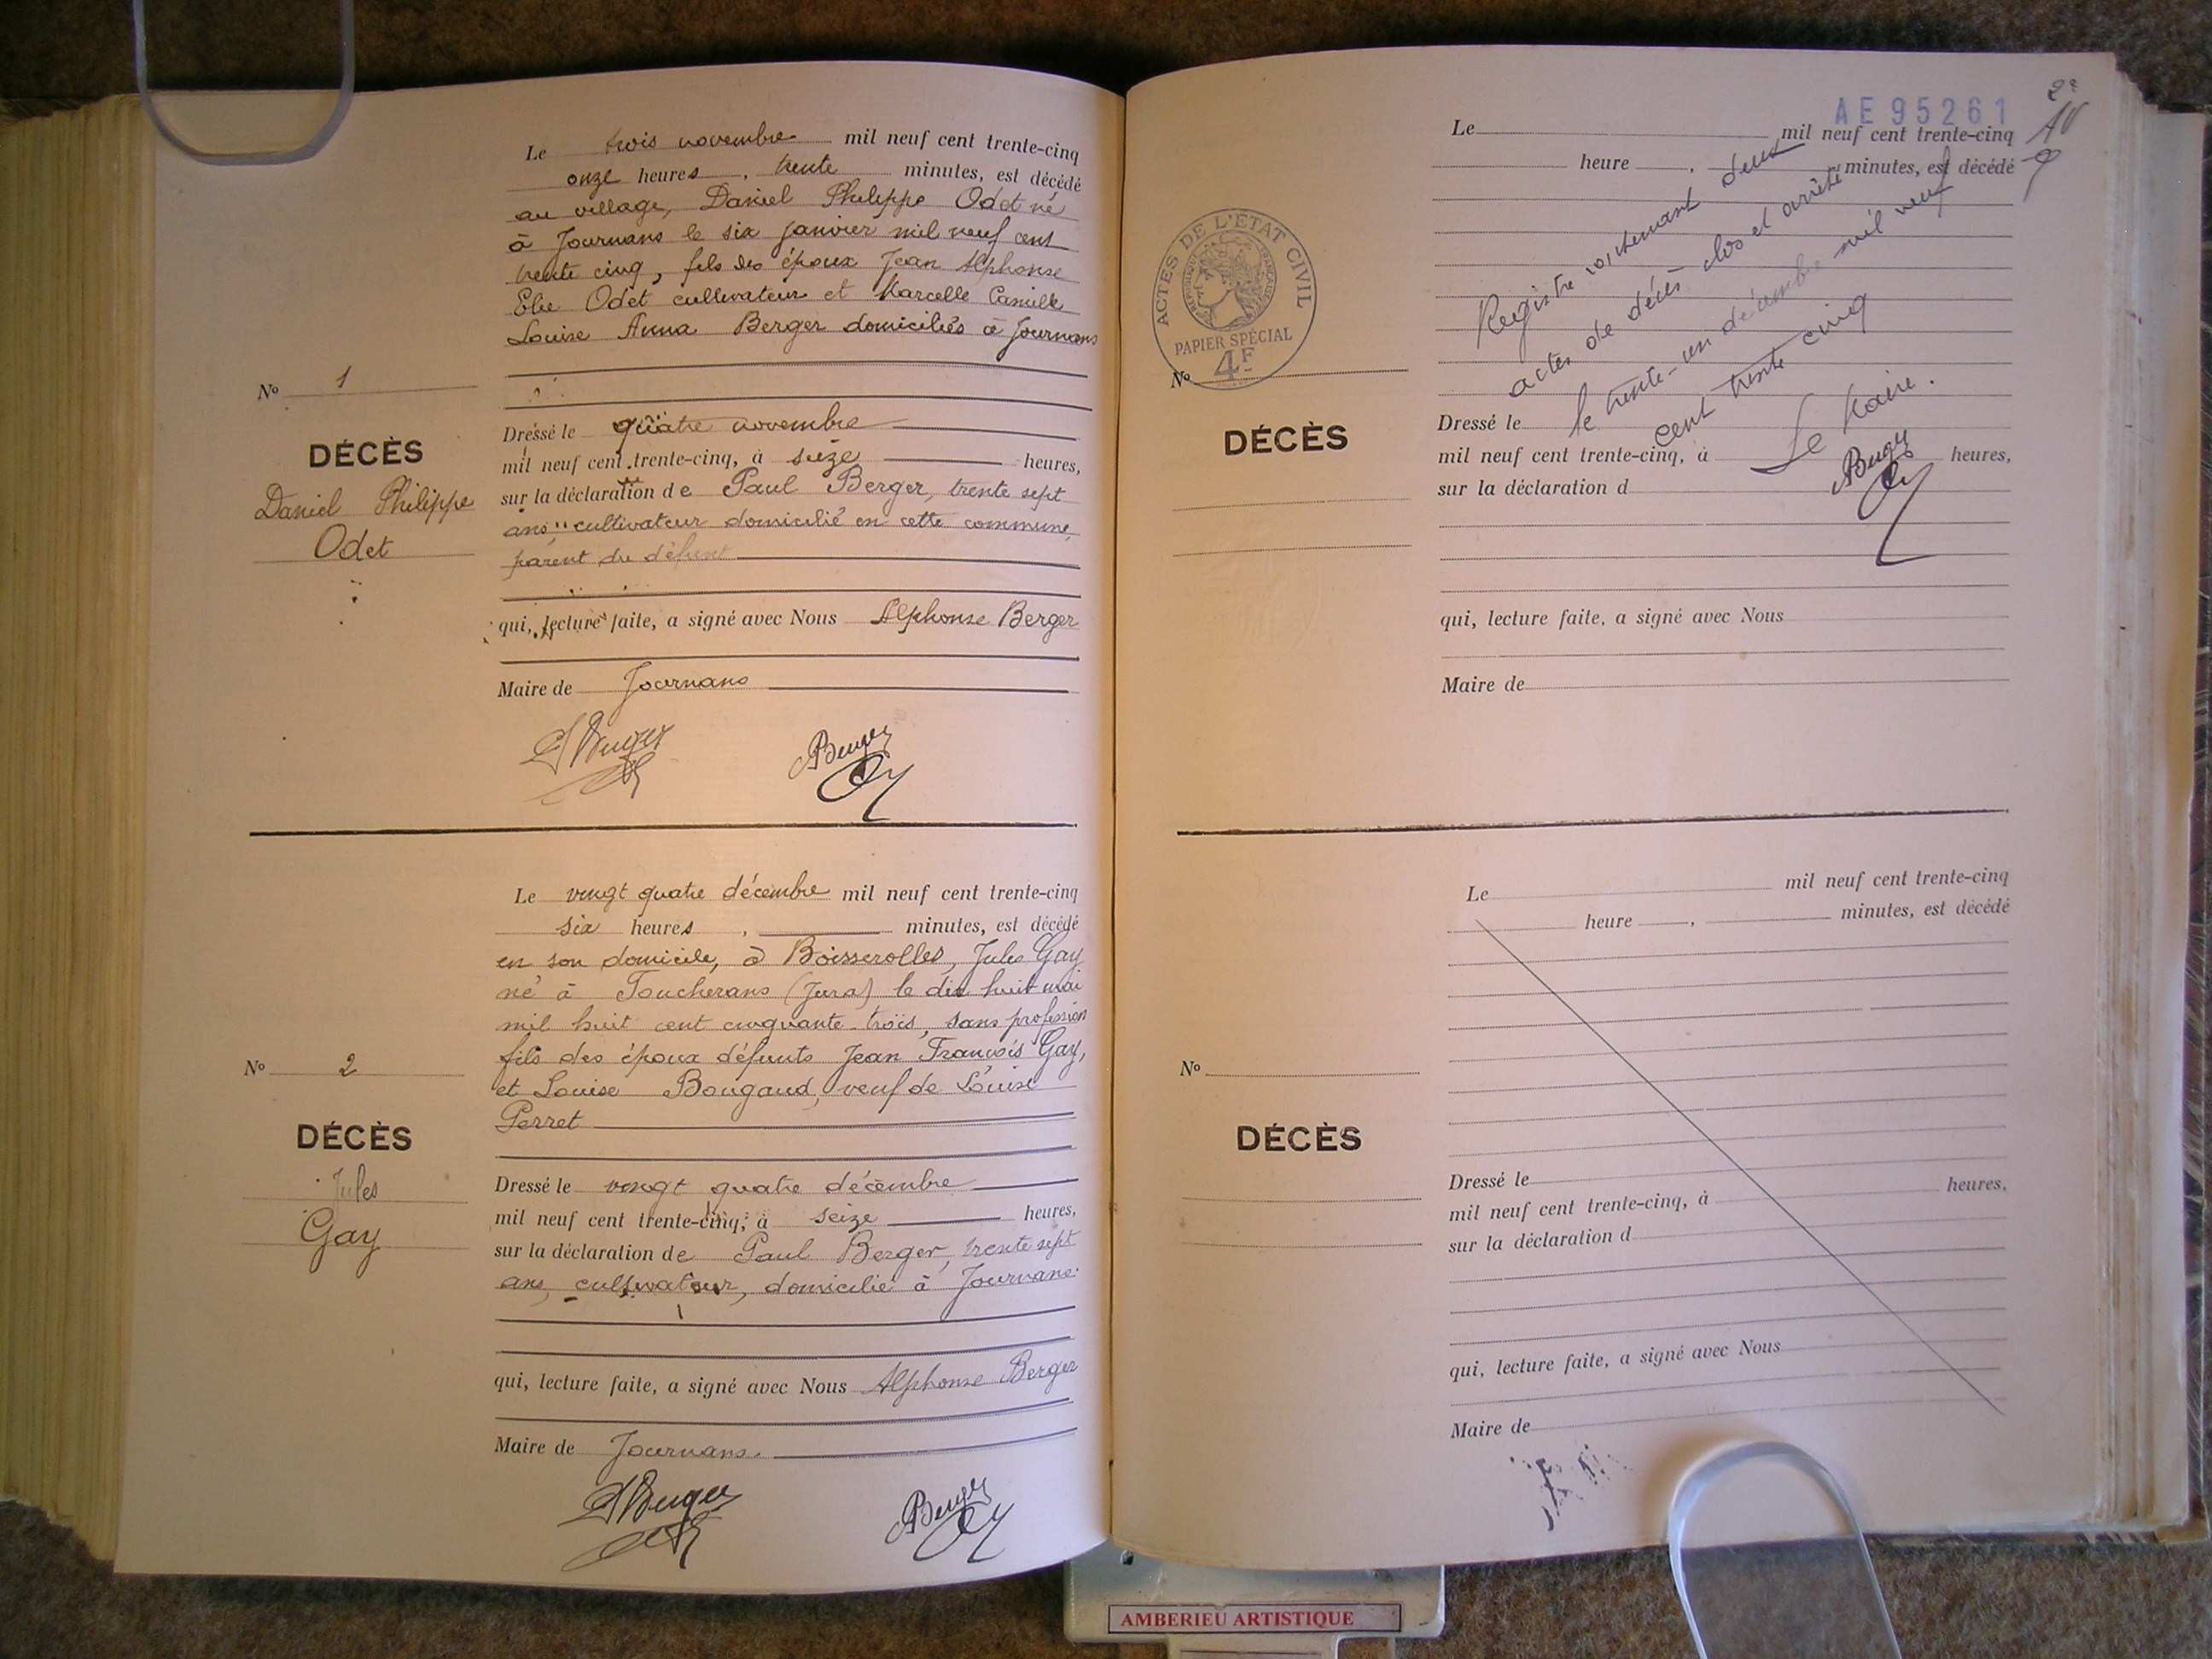 Le trois novembre mil neuf cent trente-cinq
onze heures, trente minutes, est décédé
au village, Daniel Philippe Odet né
à Journans le six janvier mil neuf cent
trente cinq, fils des époux Jean Alphonse
Elie Odet cultivateur et Marcelle Camille
Louise Anna Berger domiciliés à Journans
No 1
DÉCÈS
Daniel Philippe
Odet
Dressé le quatre novembre
mil neuf cent trente-cinq, à seize heures,
sur la déclaration de Paul Berger, trente sept
ans, cultivateur domicilié en cette commune,
parent du défunt
qui, lecture faite, a signé avec Nous Alphonse Berger
Maire de Journans
Berger
Le vingt quatre décembre mil neuf cent trente-cinq
six heures, minutes, est décédé
en son domicile, à Boisserolles, Jules Gay
né à Toucherans (Jura) le dix huit mai
mil huit cent cinquante-trois, sans profession
fils des époux défunts Jean François Gay,
et Louise Bougaud, veuf de Louise
Perret
No 2
DÉCÈS
Jules
Gay
Dressé le vingt quatre décembre
mil neuf cent trente-cinq, à seize heures,
sur la déclaration de Paul Berger, trente sept
ans, cultivateur, domicilié à Journans
qui, lecture faite, a signé avec Nous Alphonse Berger
Maire de Journans
Berger
AE95261
2e
Le mil neuf cent trente-cinq
heure, minutes, est décédé
Registre contenant deux
actes de décès clos et arrêté
le trente-un décembre mil neuf
cent trente cinq
Le Maire.
Berger
ACTES DE L'ÉTAT CIVIL
RÉPUBLIQUE FRANÇAISE
PAPIER SPÉCIAL
4F
No
DÉCÈS
Dressé le
mil neuf cent trente-cinq, à heures,
sur la déclaration d
qui, lecture faite, a signé avec Nous
Maire de
Le mil neuf cent trente-cinq
heure, minutes, est décédé
No
DÉCÈS
Dressé le
mil neuf cent trente-cinq, à heures,
sur la déclaration d
qui, lecture faite, a signé avec Nous
Maire de
AMBERIEU ARTISTIQUE